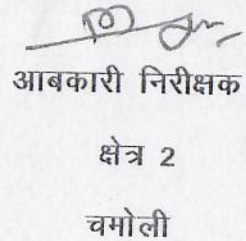 आबकारी निरीक्षक
क्षेत्र 2
चमोली